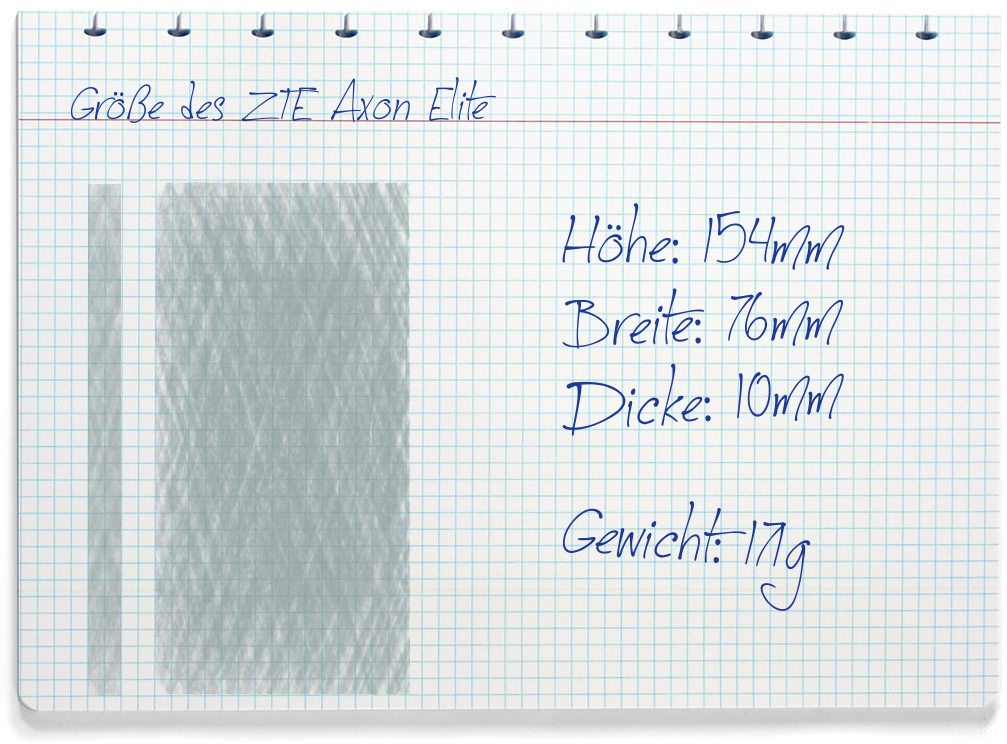 Größe des ZTE Axon Elite
Höhe: 154mm
Breite: 76mm
Dicke: 10mm
Gewicht: 177g